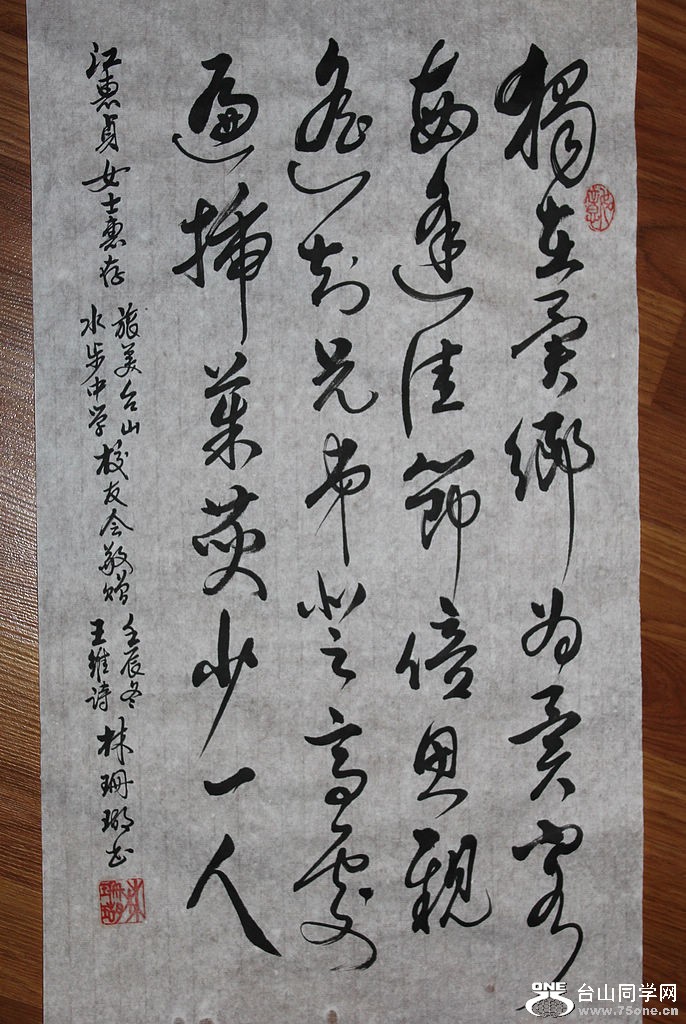 獨在異鄉为異客
每逢佳節倍思親
遙知兄弟登高處
遍插茱萸少一人
江惠貞女士惠存
旅美台山
水步中学校友会敬赠
壬辰冬
王维诗
林珊瑚书
林珊瑚
ONE
台山同学网
www.75one.cn